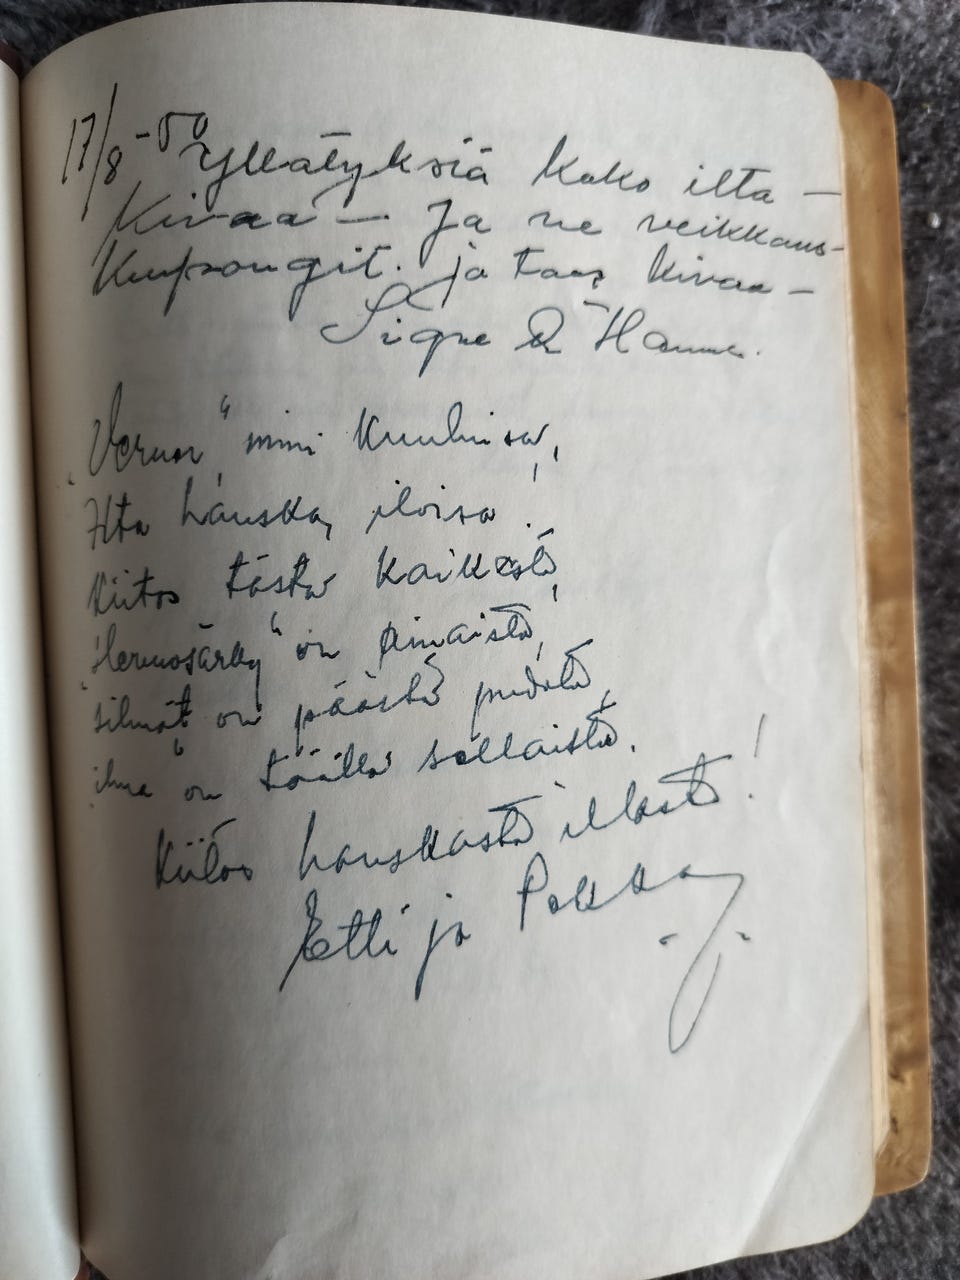 17/8 -50 Yllätyksiä koko ilta —
Kivaa — Ja ne veikkaus-
kupongit. ja taas kivaa —
Signe & Hannes.
„Verner“ nimi kuuluisa,
Ilta hauska, iloisa.
Kiitos tästä kaikesta,
„Hermosärky“ on ainaista,
silmät on päästä pudota,
„ilma“ on täällä sellaista.
Kiitos hauskasta illasta!
Etti ja Pekka